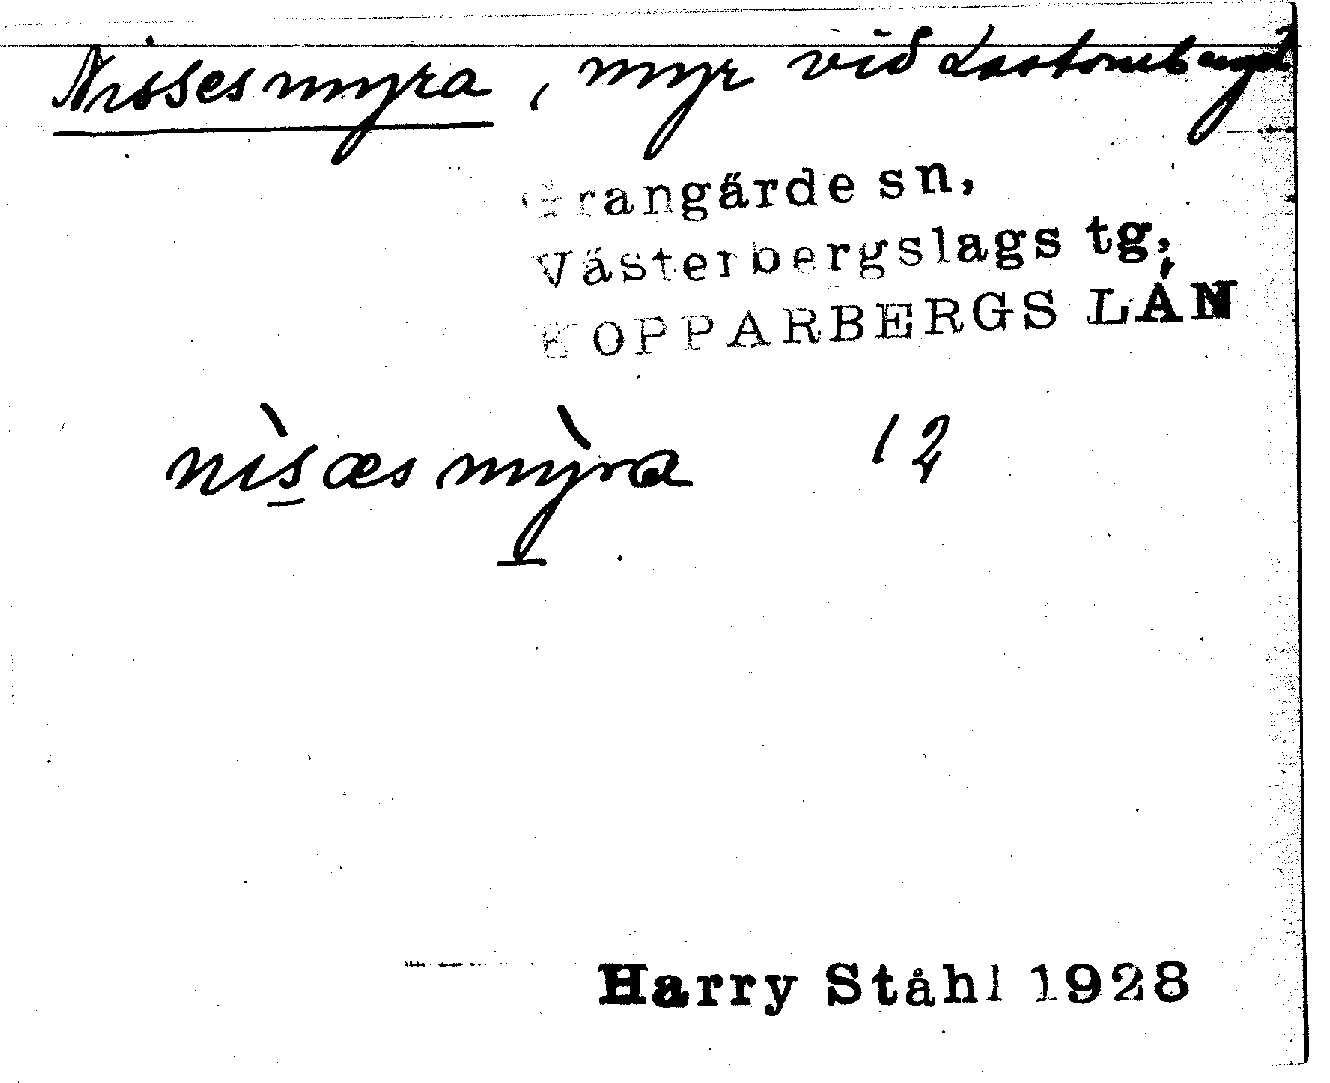 Nissesmyra, myr vid
Grangärde sn,
Västerbergslags tg,
KOPPARBERGS LÄN
nìsæs mỳra 12
Harry Ståhl 1928